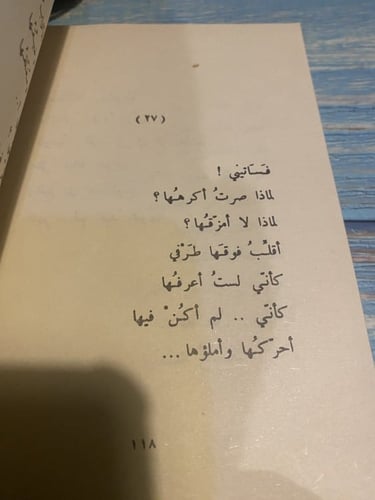 (٢٧)
فَسَاتيني !
لماذا صرتُ أكرهُها ؟
لماذا لا أمزّقُها ؟
أقلِّبُ فوقَها طَرْفي
كأنّي لستُ أعرفُها
كأنّي .. لم أكُنْ فيها
أحرّكُها وأملؤها ...
١١٨